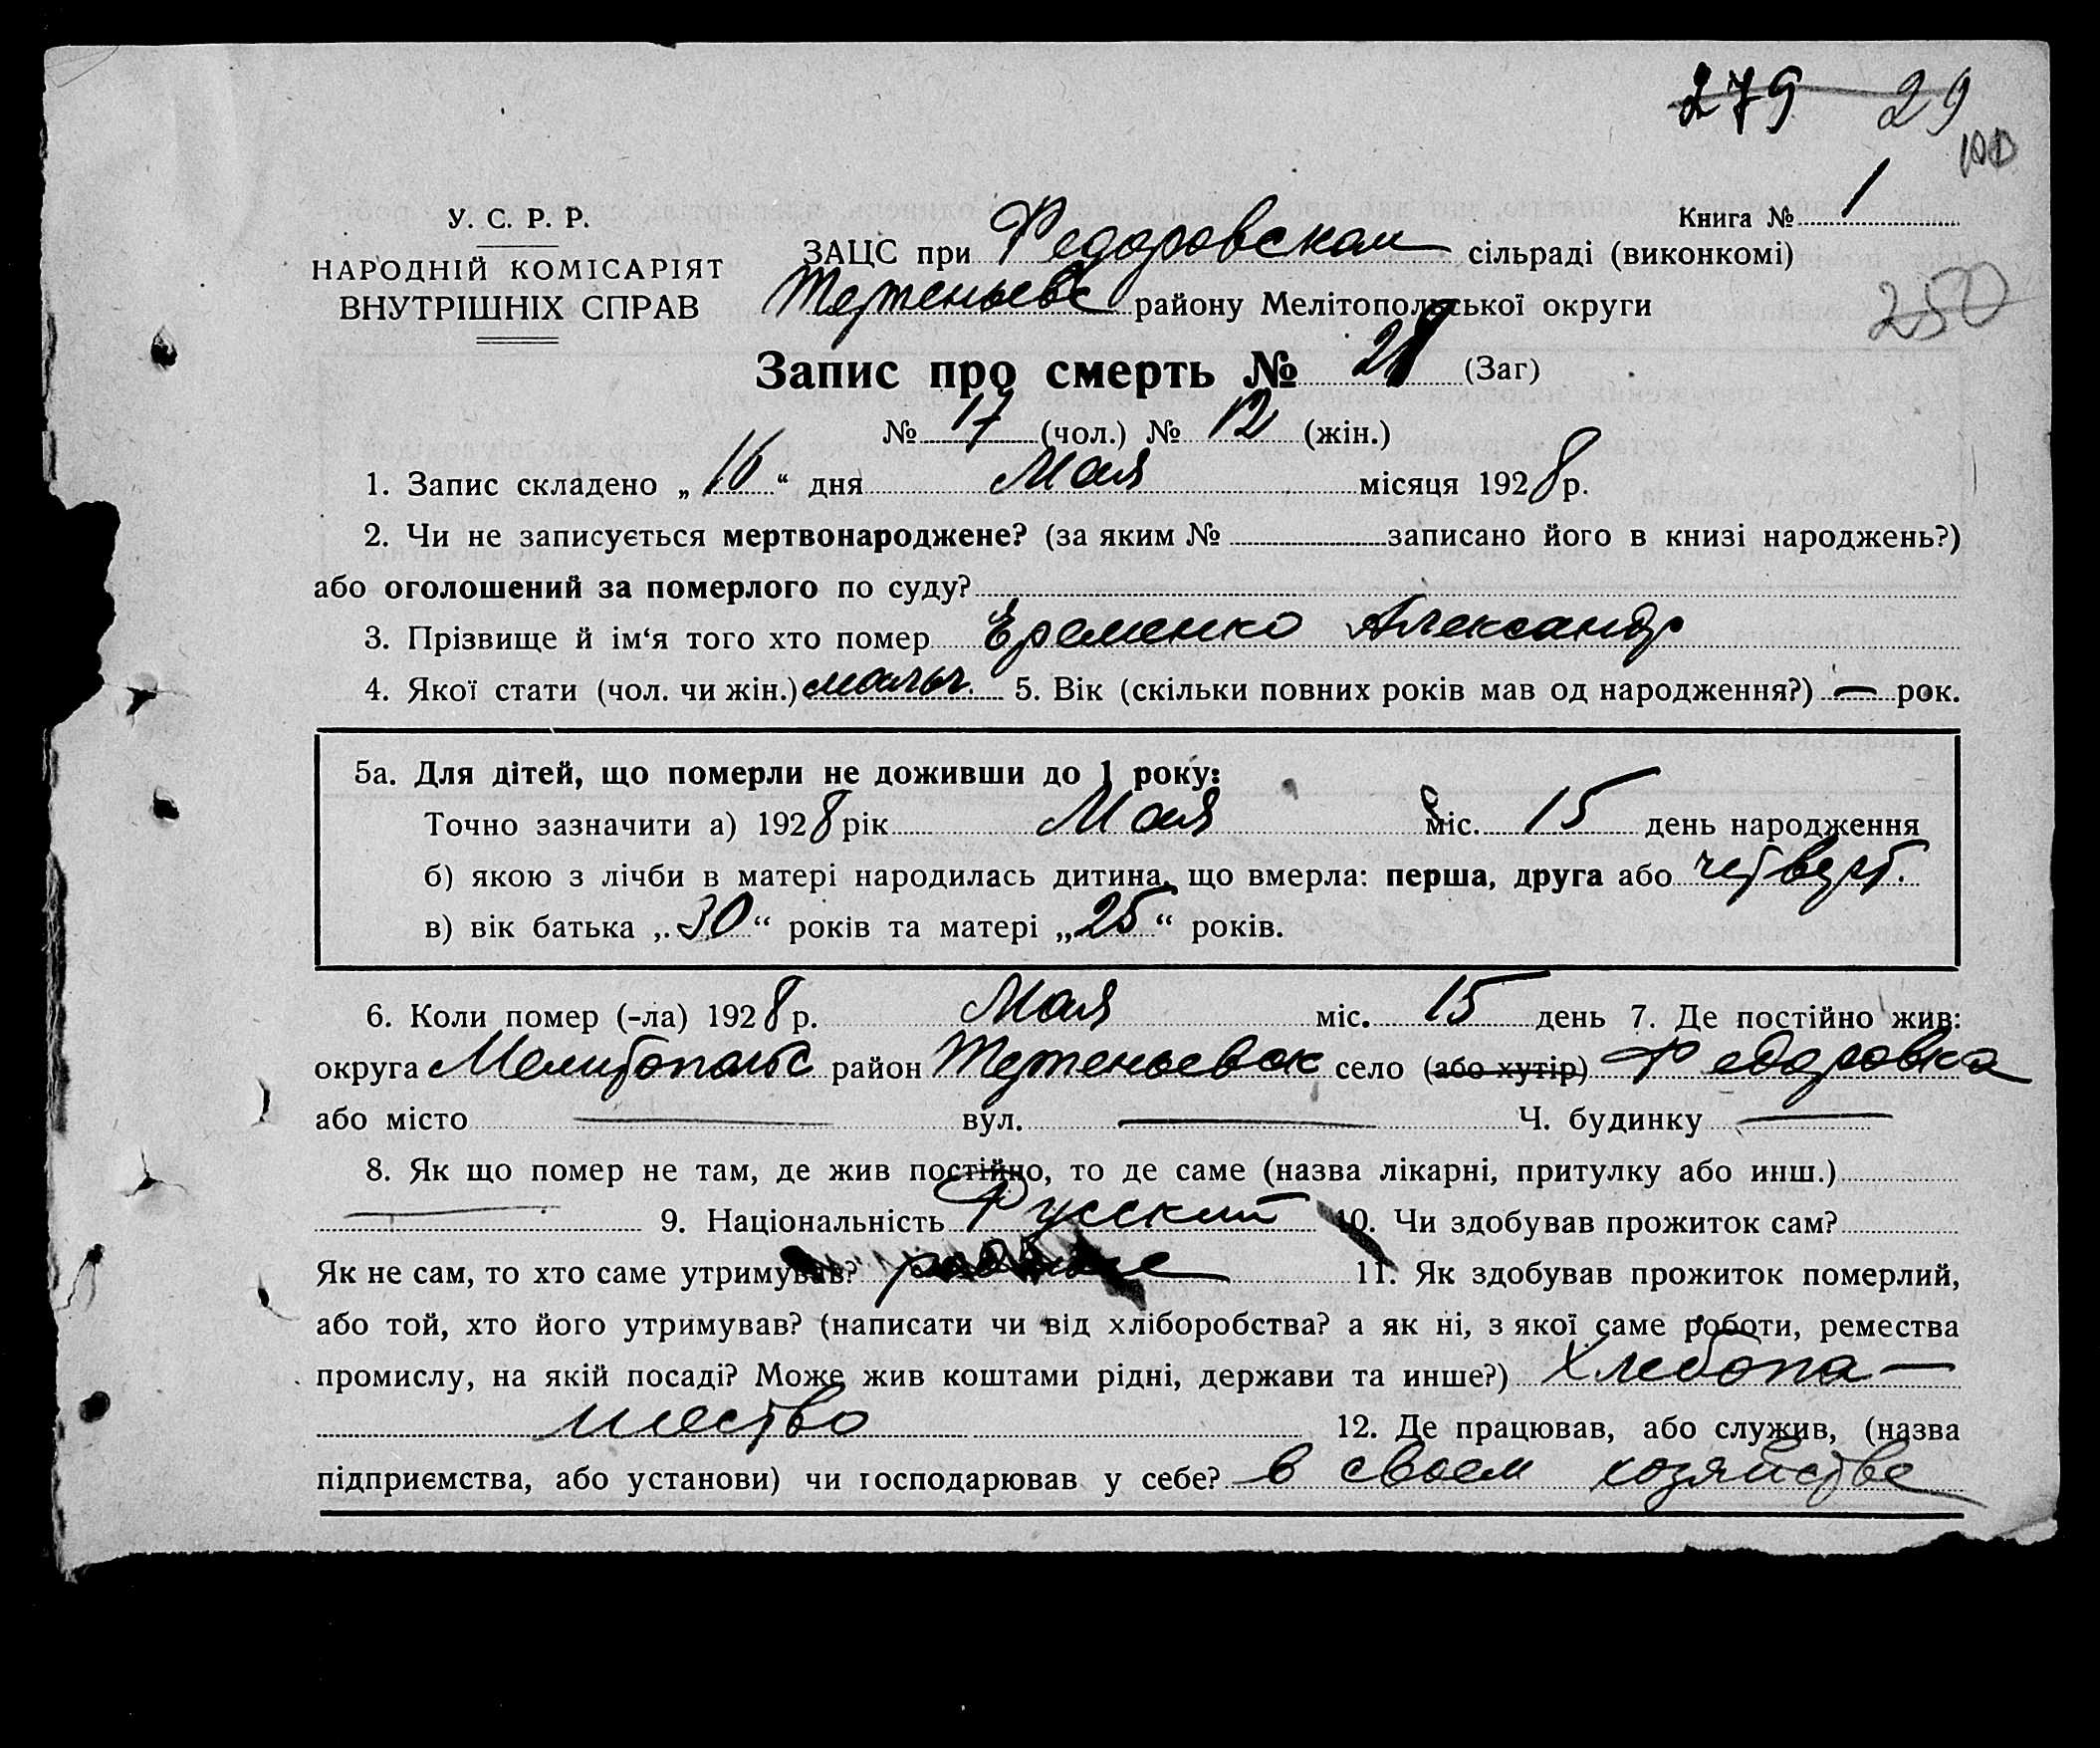 279 29
100
У. С. Р. Р.
НАРОДНІЙ КОМІСАРІЯТ
ВНУТРІШНІХ СПРАВ
Книга № 1
ЗАЦС при Федоровском сільраді (виконкомі)
району Мелітопольської округи
250
Запис про смерть № 28 (Заг)
№ 17 (чол.) № 12 (жін.)
1. Запис складено „ 16 “ дня Мая місяця 1928 р.
2. Чи не записується мертвонароджене? (за яким № записано його в книзі народжень?)
або оголошений за померлого по суду?
3. Прізвище й ім‘я того хто помер Еременко Александр
4. Якої стати (чол. чи жін.) мальч. 5. Вік (скільки повних років мав од народження?) — рок.
5а. Для дітей, що померли не доживши до 1 року:
Точно зазначити а) 1928 рік Мая міс. 15 день народження
б) якою з лічби в матері народилась дитина, що вмерла: перша, друга або четверт.
в) вік батька „ 30 “ років та матері „ 25 “ років.
6. Коли помер (-ла) 1928 р. Мая міс. 15 день 7. Де постійно жив:
округа Мелитопольс район село (або хутір) Федоровка
або місто — вул. — Ч. будинку —
8. Як що помер не там, де жив постійно, то де саме (назва лікарні, притулку або инш.)
— 9. Національність Русский 10. Чи здобував прожиток сам?
Як не сам, то хто саме утримував? 11. Як здобував прожиток померлий,
або той, хто його утримував? (написати чи від хліборобства? а як ні, з якої саме роботи, ремества
промислу, на якій посаді? Може жив коштами рідні, держави та инше?) Хлебопа-
шество 12. Де працював, або служив, (назва
підприємства, або установи) чи господарював у себе? в своем хозяйстве